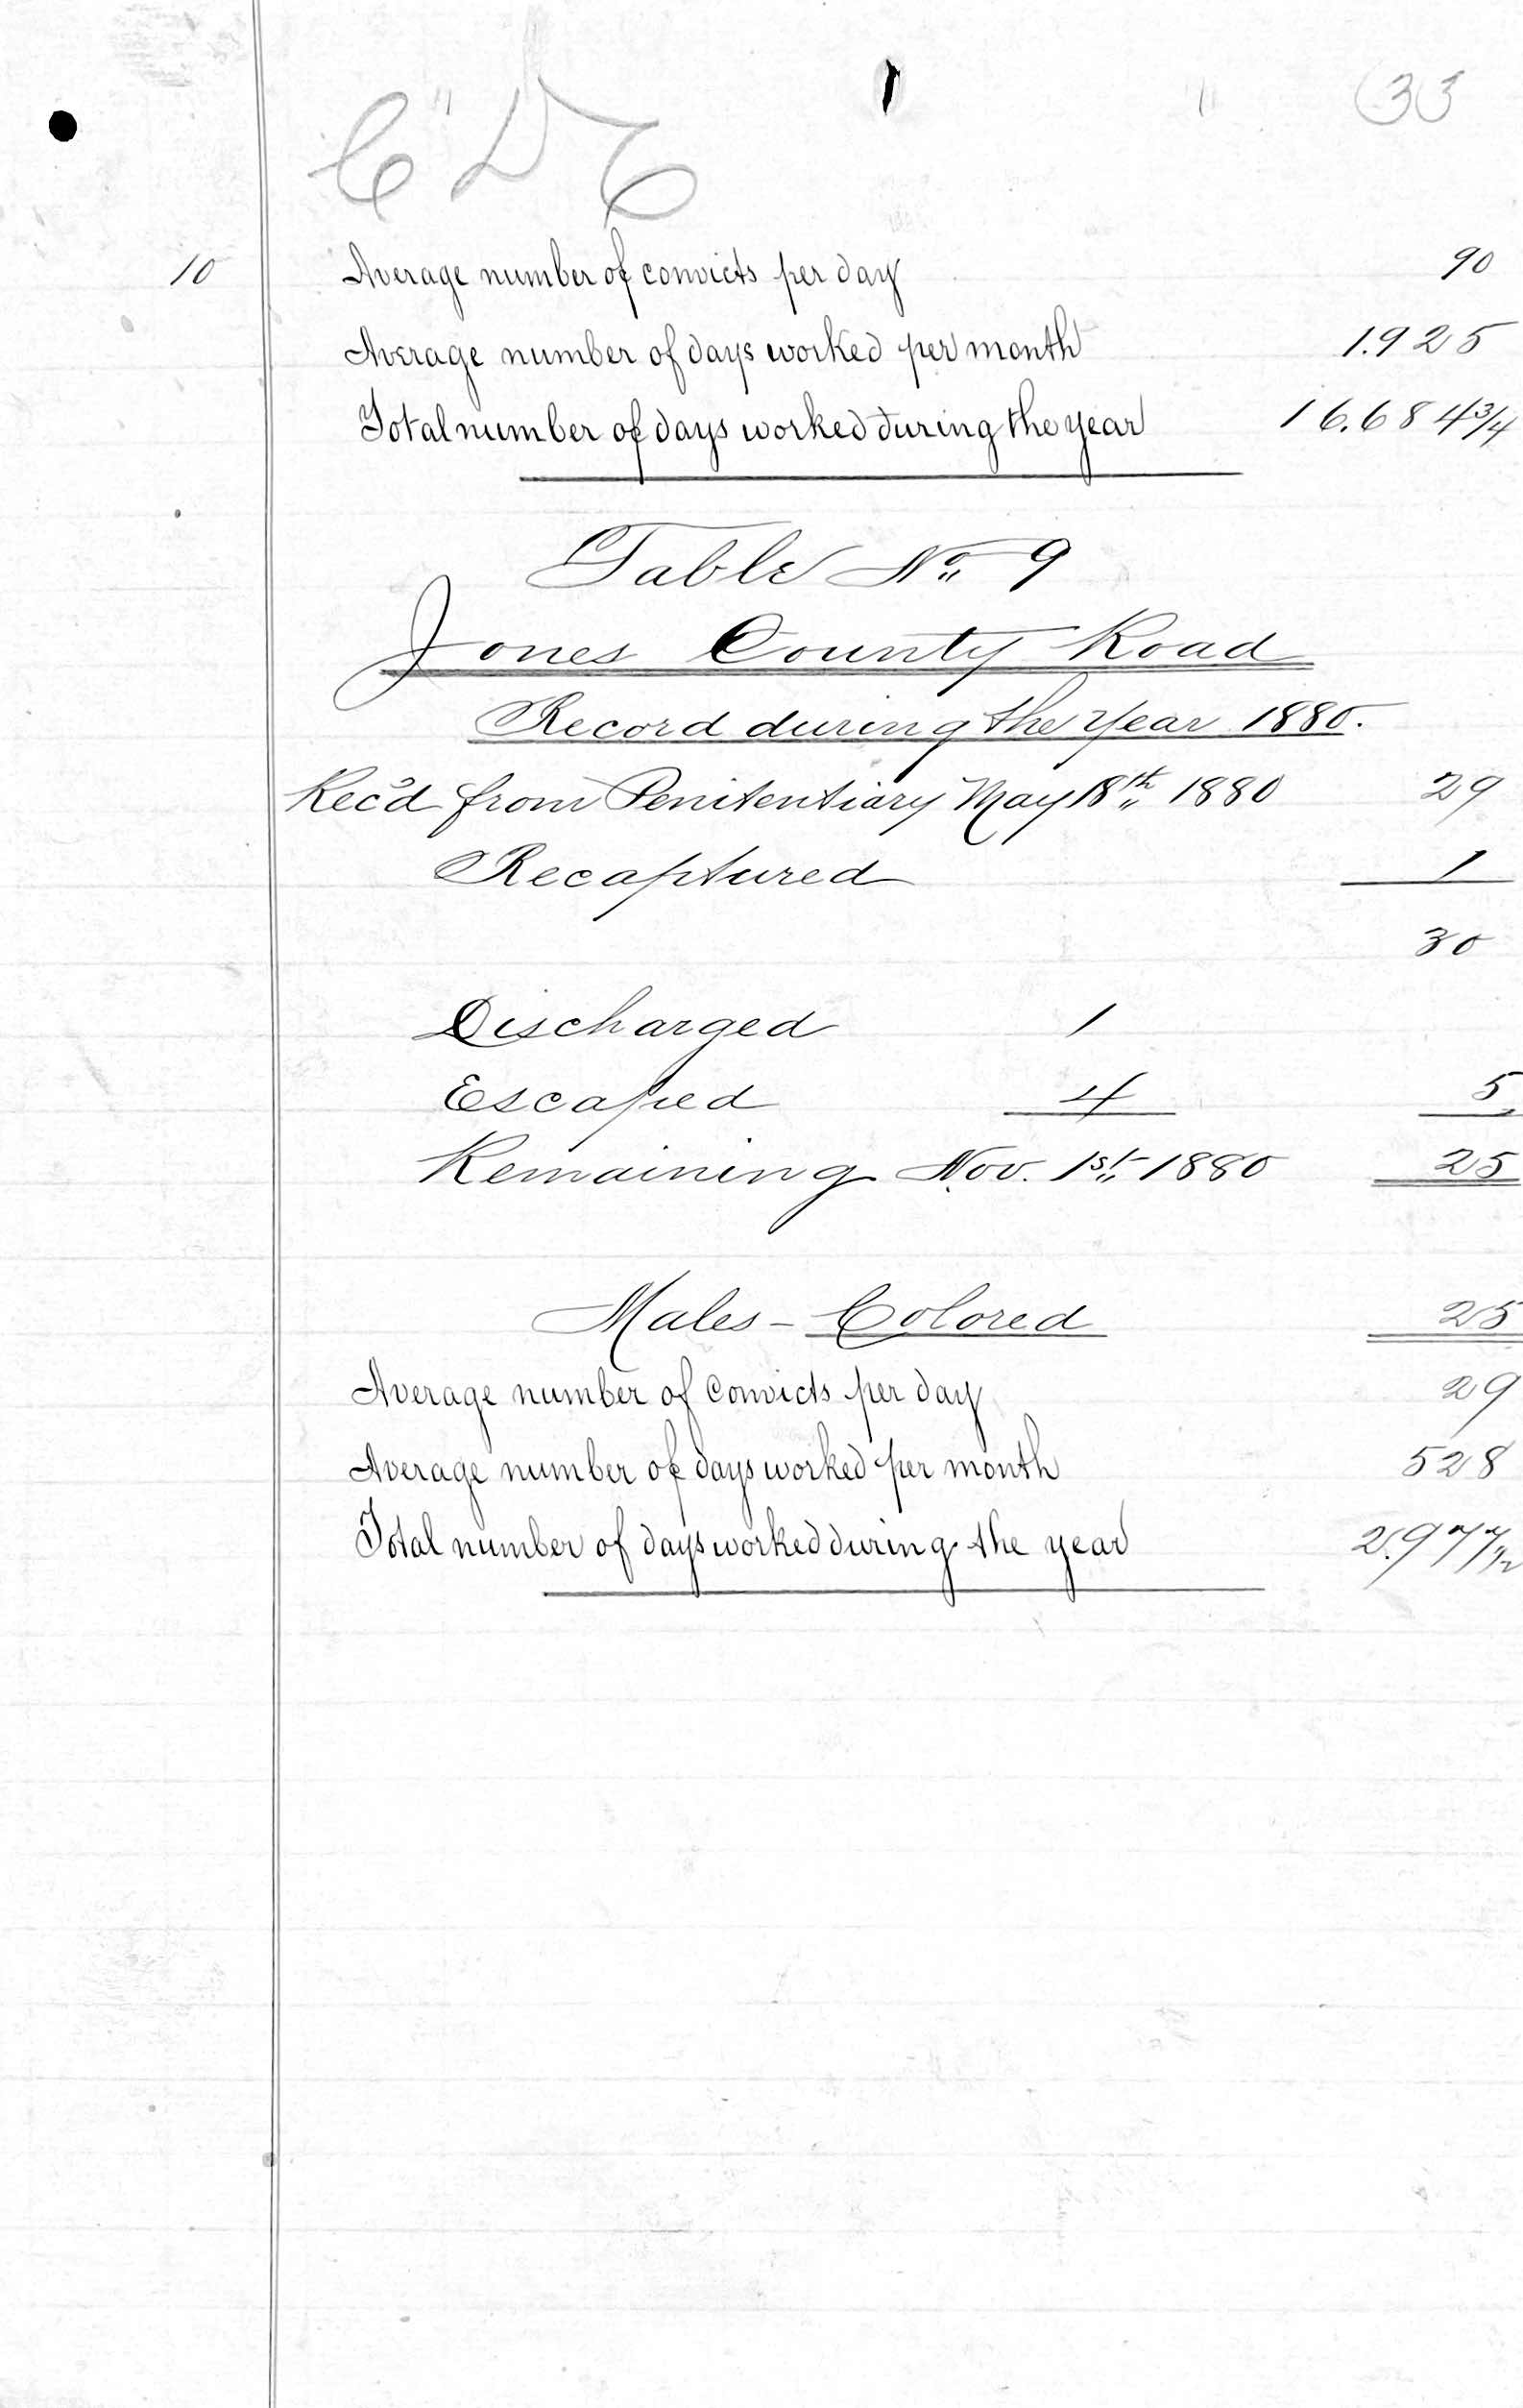 33
10 Average number of convicts per day 90
Average number of days worked per month 1.925
Total number of days worked during the year 16.684 3/4
Table No. 9
Jones County Road
Record during the Year 1880.
Rec'd from Penitentiary May 18th 1880 29
Recaptured 1
30
Discharged 1
Escaped 4 5
Remaining Nov. 1st 1880 25
Males - Colored 25
Average number of Convicts per day 29
Average number of days worked per month 528
Total number of days worked during the year 2.977 1/2